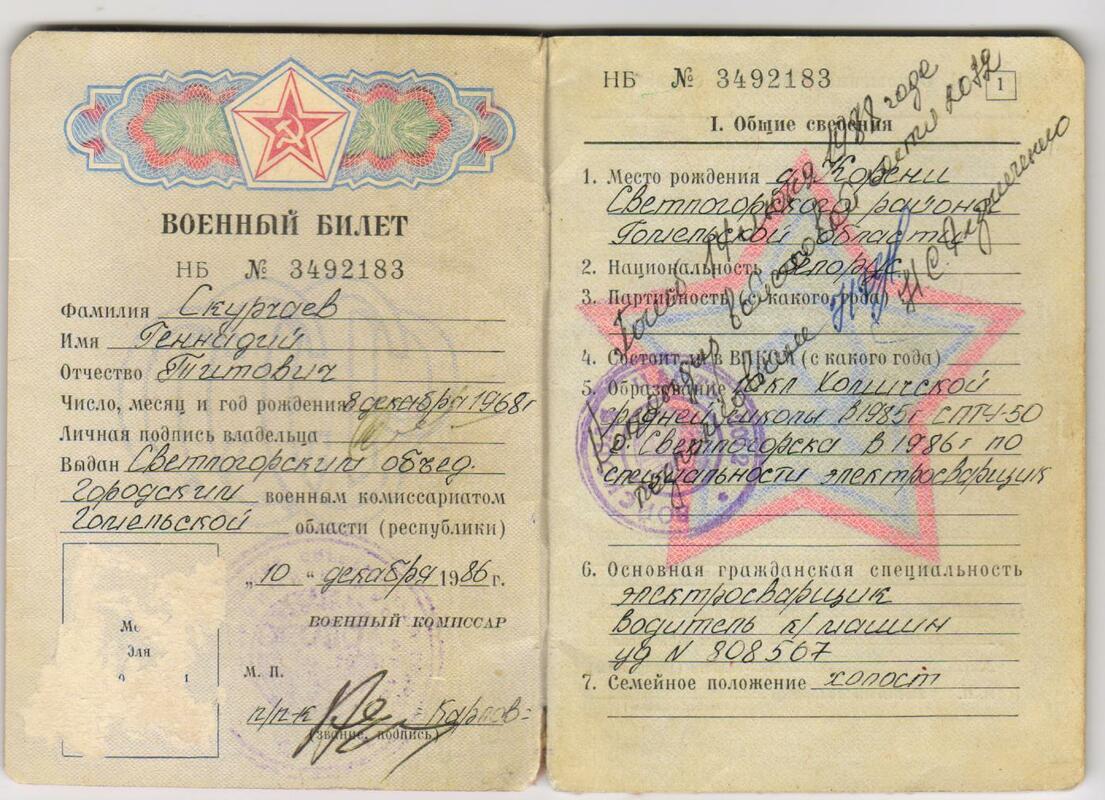 ВОЕННЫЙ БИЛЕТ
НБ № 3492183
Фамилия Скургаев
Имя Геннадий
Отчество Титович
Число, месяц и год рождения 8 декабря 1968г
Личная подпись владельца
Выдан Светлогорским объед.
городским военным комиссариатом
Гомельской области (республики)
„10“ декабря 1986 г.
ВОЕННЫЙ КОМИССАР
М. П.
п/п-к Карпов
(звание, подпись)
Для
НБ № 3492183
1
I. Общие сведения
1. Место рождения д. Корени
Светлогорского района
Гомельской области
2. Национальность белорус
3. Партийность (с какого года)
4. Состоит ли в ВЛКСМ (с какого года)
5. Образование 10кл Холмичской
средней школы в 1985г СПТУ-50
г. Светлогорска в 1986г по
специальности электросварщик
6. Основная гражданская специальность
электросварщик
водитель к/машин
уд N 808567
7. Семейное положение холост
Погиб 14 1988 года
Командир войсковой части